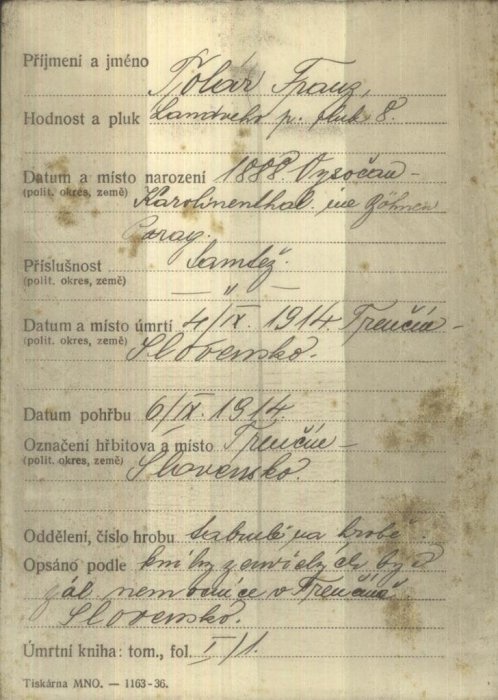 Příjmení a jméno Tolár Franz,
Hodnost a pluk Landwehr p. pluk 8.
Datum a místo narození 1888. Vysočan –
(polit. okres, země) Karolinenthal. Böhmen
Prag.
Příslušnost Samtéž.
(polit. okres, země) — " —
Datum a místo úmrtí 4/IX. 1914 Trenčín –
(polit. okres, země) Slovensko.
Datum pohřbu 6/IX. 1914.
Označení hřbitova a místo Trenčín –
(polit. okres, země) Slovensko.
Oddělení, číslo hrobu na hrobě
Opsáno podle knihy zemřelých
nemocnice v Trenčíně
Slovensko.
Úmrtní kniha: tom., fol. I/1.
Tiskárna MNO. — 1163-36.